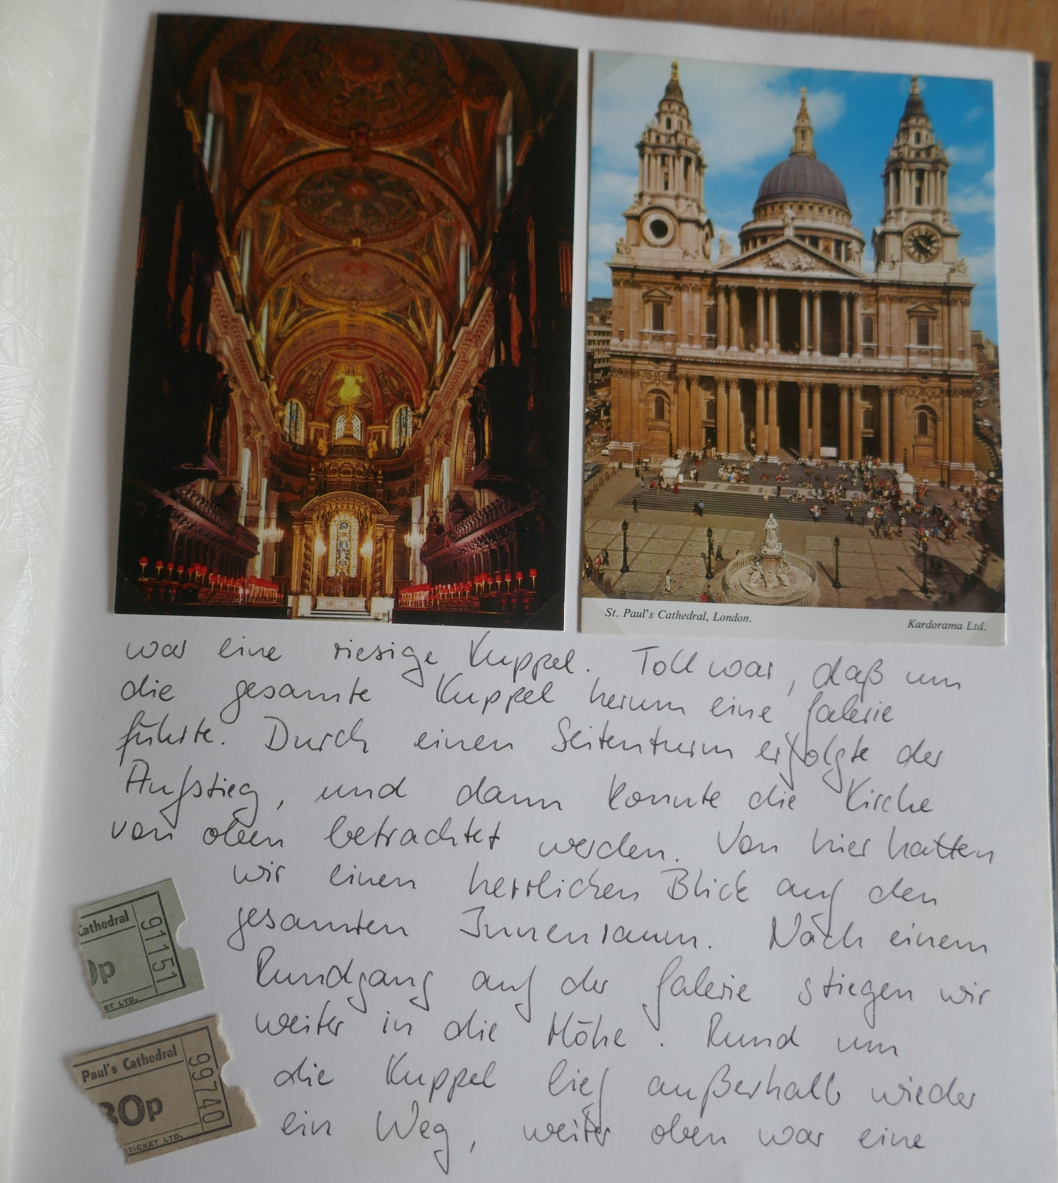 St. Paul's Cathedral, London.
Kardorama Ltd.
war eine riesige Kuppel. Toll war, daß um
die gesamte Kuppel herum eine Galerie
führte. Durch einen Seitenturm erfolgte der
Aufstieg, und dann konnte die Kirche
von oben betrachtet werden. Von hier hatten
wir einen herrlichen Blick auf den
gesamten Innenraum. Nach einem
Rundgang auf der Galerie stiegen wir
weiter in die Höhe. Rund um
die Kuppel lief außerhalb wieder
ein Weg, weiter oben war eine
Cathedral
0p
91151
ET LTD.
Paul's Cathedral
30p
99740
TICKET LTD.